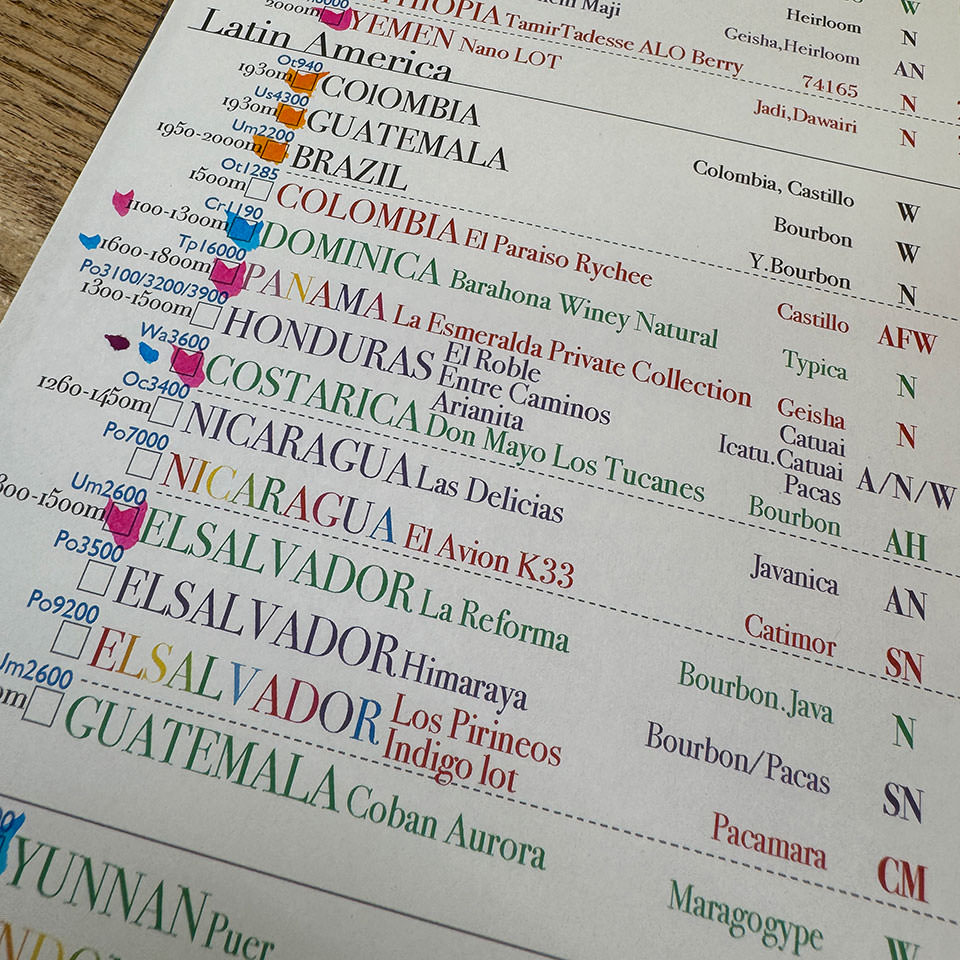 Maji Heirloom N
2000m ETHIOPIA TamirTadesse ALO Berry Geisha,Heirloom AN
YEMEN Nano LOT 74165 N
Jadi,Dawairi N
Latin America
Ot940
1930m COlOMBIA Colombia, Castillo W
Us4300
1930m GUATEMALA Bourbon W
Um2200
1950-2000m BRAZIL Y.Bourbon N
Ot1285
1500m COLOMBIA El Paraiso Rychee Castillo AFW
Cr1190
1100-1300m DOMINICA Barahona Winey Natural Typica N
Tp16000
1600-1800m PANAMA La Esmeralda Private Collection Geisha N
Po3100/3200/3900
1300-1500m HONDURAS El Roble Catuai
Entre Caminos Icatu.Catuai A/N/W
Arianita Pacas
Wa3600
COSTARICA Don Mayo Los Tucanes Bourbon AH
Oc3400
1260-1450m NICARAGUA Las Delicias Javanica AN
Po7000
NICARAGUA El Avion K33 Catimor SN
Um2600
1500m ELSALVADOR La Reforma Bourbon.Java N
Po3500
ELSALVADOR Himaraya Bourbon/Pacas SN
Po9200
ELSALVADOR Los Pirineos Pacamara CM
Indigo lot
Um2600
GUATEMALA Coban Aurora Maragogype W
YUNNAN Puer